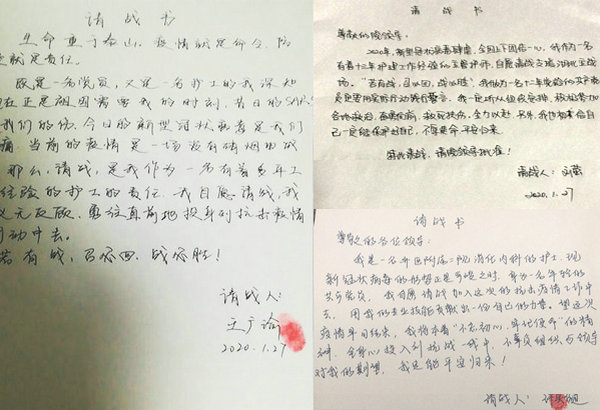 请战书
生命重于泰山，疫情就是命令，防
控就是责任。
既是一名党员，又是一名护士的我深知
现在正是祖国需要我的时刻，昔日的SARS
我们的伤，今日的新型冠状病毒是我们
痛，当前的疫情是一场没有硝烟的战
那么，请战，是我作为一名有着多年工
经验的护士的责任，我自愿请战，我
义无反顾，勇往直前地投身到抗击疫情
行动中去。
若有战，召必回，战必胜！
请战人：
2020.1.27
请战书
尊敬的院领导：
2020年，新型冠状病毒肆虐，全国上下团结一心，我作为一名
有着十三年护理工作经验的主管护师，自愿请战支援湖北主战
场。“若有战，召必回，战必胜”，我作为一名十二年党龄的共产党
员更要用实际行动践行誓言。我一定听从组织安排，积极参加
各项救治，有难同前，救死扶伤，全力以赴。另外，我也知道给自
己一定能保护好自己，不辱使命，平安归来。
因此请战，请院领导批准！
请战人：刘萤
2020.1.27
请战书
尊敬的各位领导：
我是一名开医附属二院消化内科的护士，现
新冠状病毒的形势正是可畏之时，身为一名年轻的
共产党员，我自愿请战加入这次的抗击疫情工作中
去，用我的专业技能贡献出一份自己的力量。望这次
疫情早日结束，我将本着“不忘初心，牢记使命”的精
神，全身心投入到抗战一线中，不辜负组织与领导
对我的期望，我定能平安归来！
请战人：